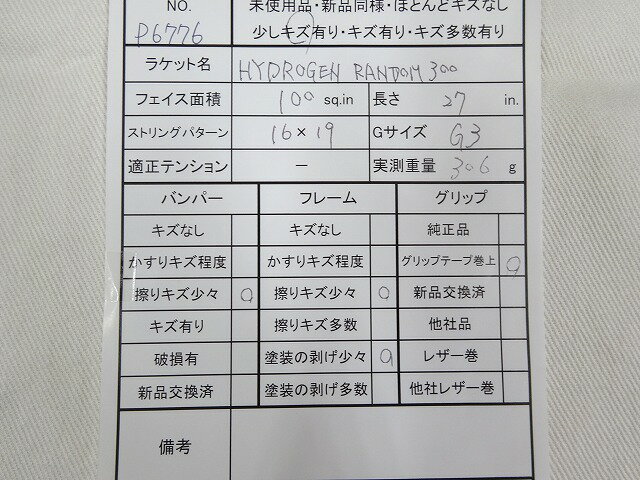 NO. 未使用品・新品同様・ほとんどキズなし
P6776 少しキズ有り・キズ有り・キズ多数有り
ラケット名 HYDROGEN RANDOM 300
フェイス面積 100 sq.in 長さ 27 in.
ストリングパターン 16×19 Gサイズ G3
適正テンション － 実測重量 306 g
バンパー フレーム グリップ
キズなし キズなし 純正品
かすりキズ程度 かすりキズ程度 グリップテープ巻上 ○
擦りキズ少々 ○ 擦りキズ少々 ○ 新品交換済
キズ有り 擦りキズ多数 他社品
破損有 塗装の剥げ少々 ○ レザー巻
新品交換済 塗装の剥げ多数 他社レザー巻
備考